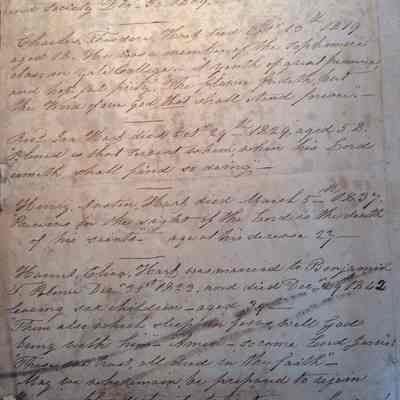 and Society Dec. 31. 1809.
Charles Hart died Apr 10th 1819
aged 18. He was a member of the Sophomore
class in Yale College. A youth of great promise
and piety. The flower fadeth, but
the Word of our God that shall stand forever."
Rev. Ira Hart died Octr 29th 1829, aged 58.
Blessed is that servant whom when his Lord
cometh shall find so doing"
Henry Austin Hart died March 5th 1837.
Precious in the sight of the Lord is the death
of his saints" age at his decease 27
Harriet Eliza Hart was married to Benjamin
F. Palmer Decr 25th 1822, and died Dec. 1842
leaving six children - aged 39
Them also which sleep in Jesus will God
bring with him" Amen - so come Lord Jesus
These we trust, all died in the faith"
May we who remain, be prepared to rejoin